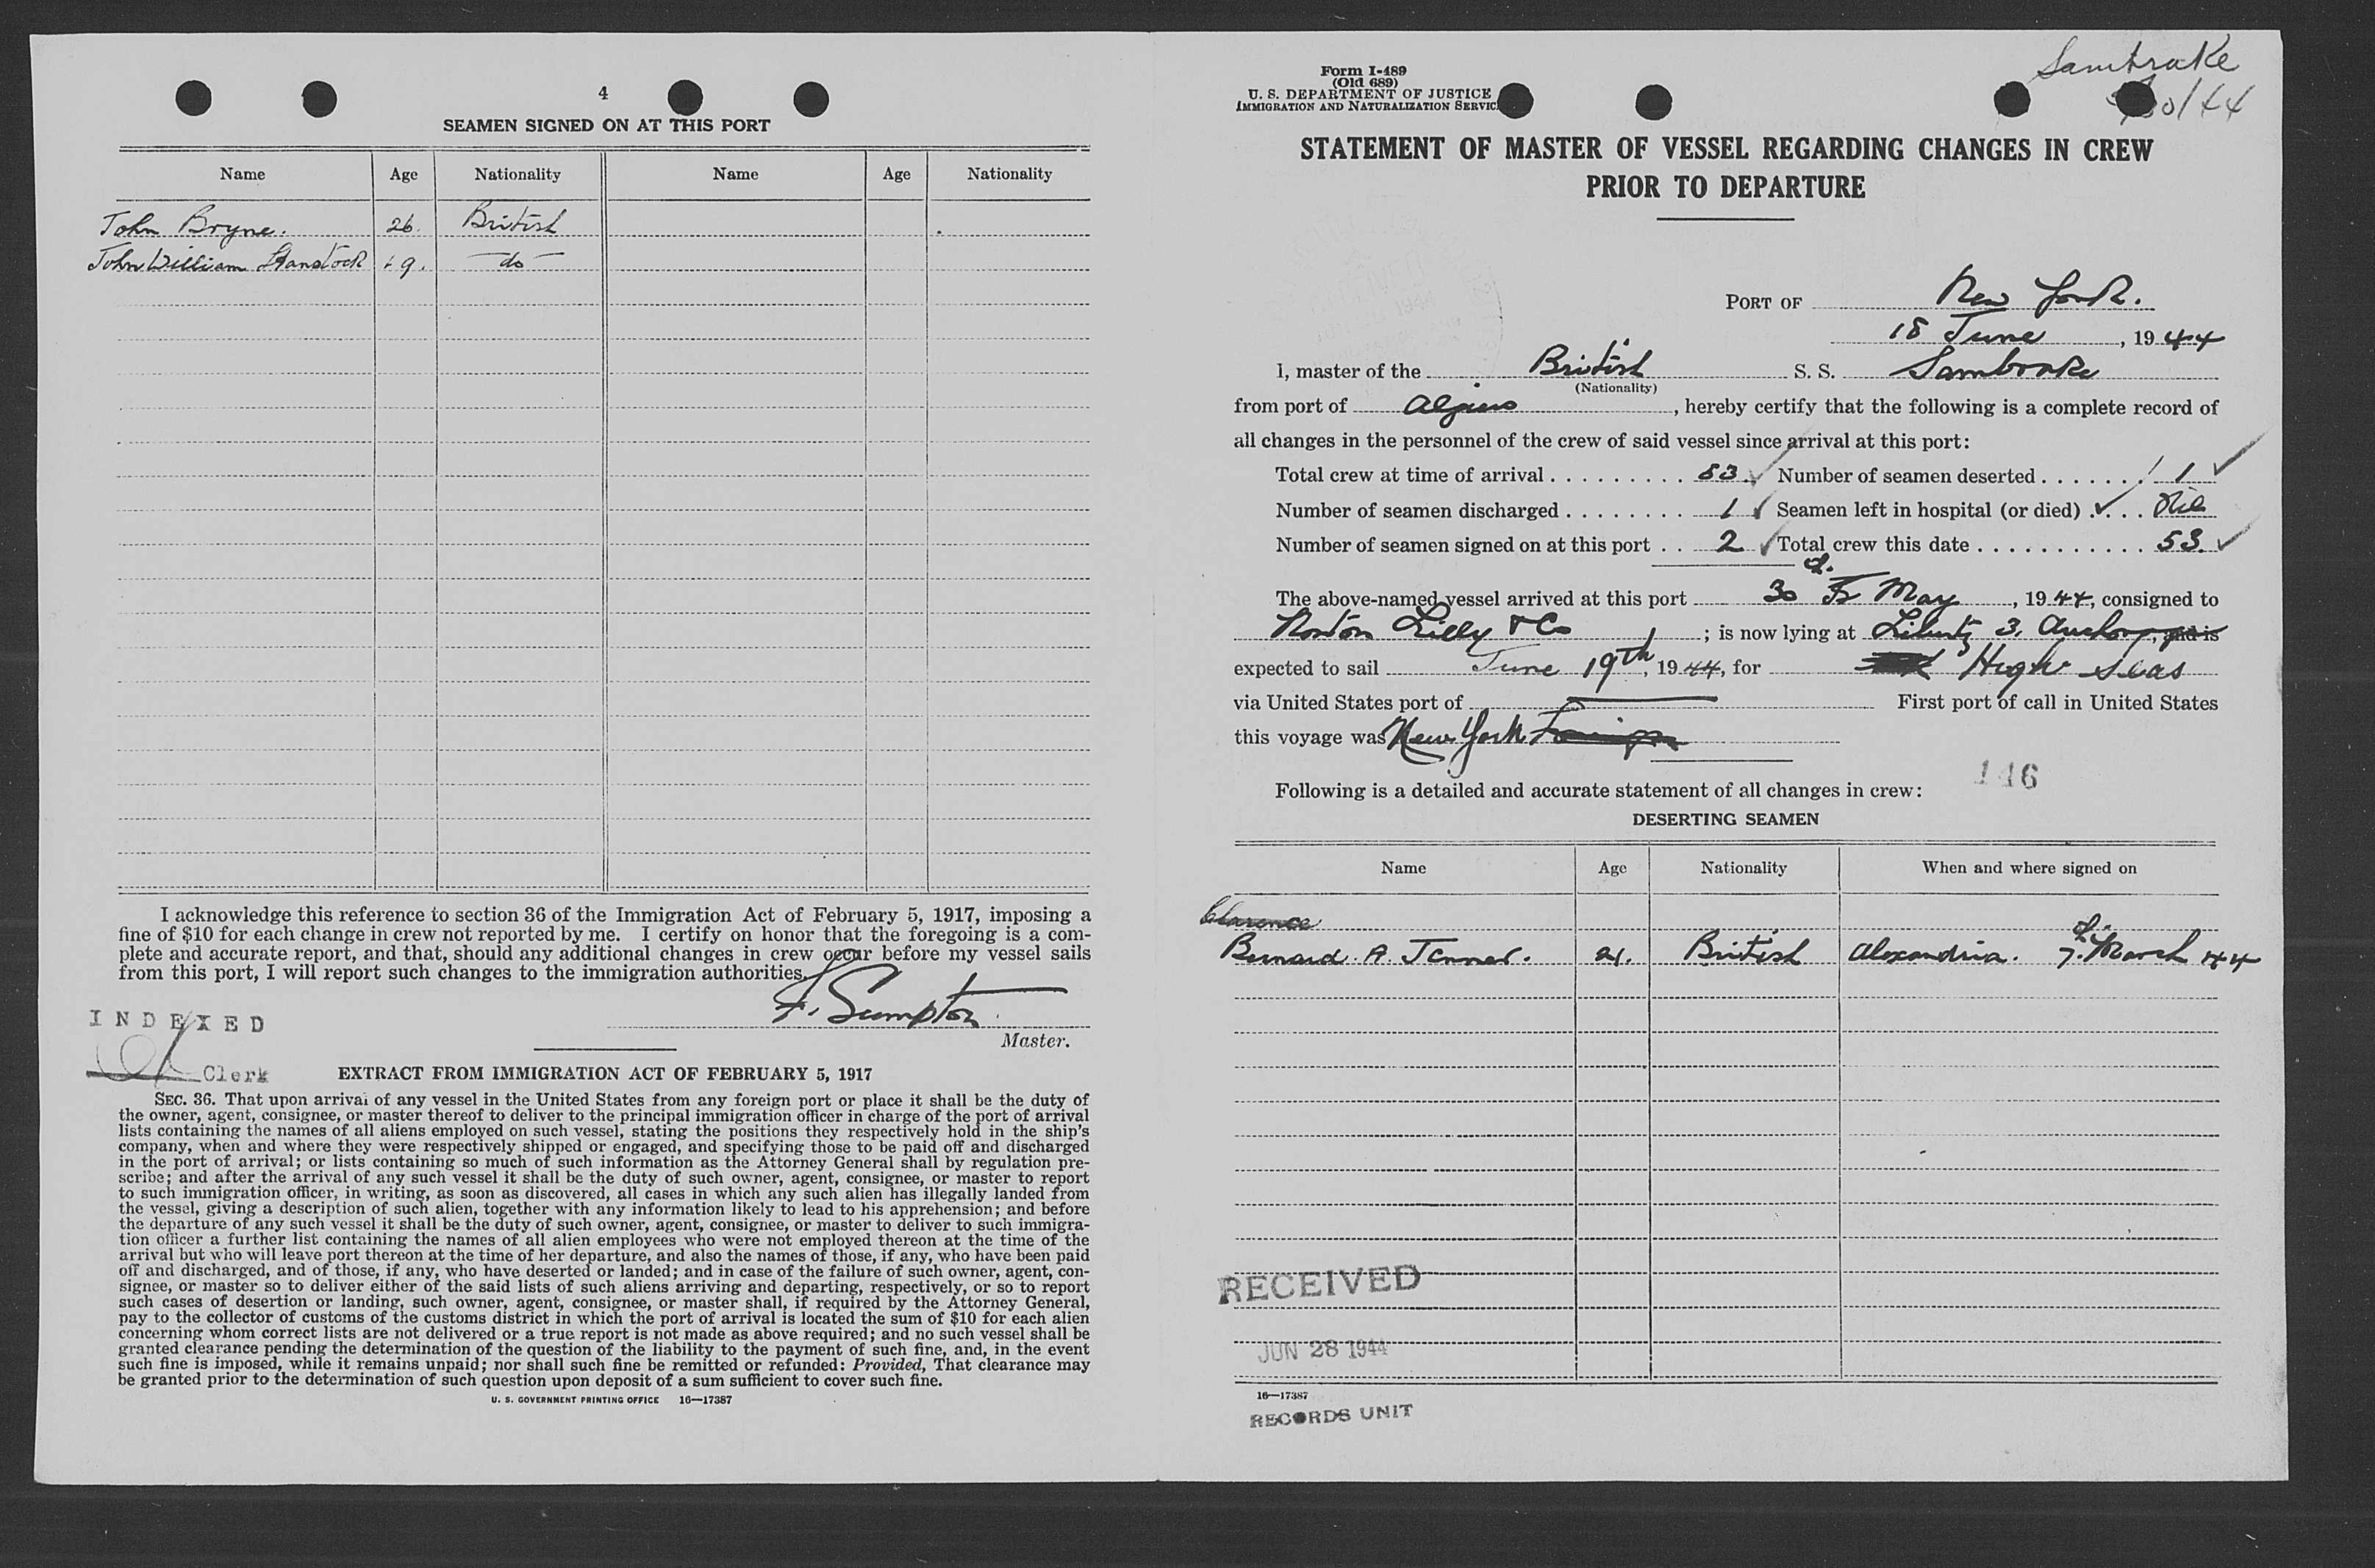 4
SEAMEN SIGNED ON AT THIS PORT
Name Age Nationality Name Age Nationality
John Bryne. 26. British
John William 19. do
I acknowledge this reference to section 36 of the Immigration Act of February 5, 1917, imposing a
fine of $10 for each change in crew not reported by me. I certify on honor that the foregoing is a com-
plete and accurate report, and that, should any additional changes in crew occur before my vessel sails
from this port, I will report such changes to the immigration authorities.
F. Sumpton
Master.
INDEXED
Clerk
EXTRACT FROM IMMIGRATION ACT OF FEBRUARY 5, 1917
SEC. 36. That upon arrival of any vessel in the United States from any foreign port or place it shall be the duty of
the owner, agent, consignee, or master thereof to deliver to the principal immigration officer in charge of the port of arrival
lists containing the names of all aliens employed on such vessel, stating the positions they respectively hold in the ship's
company, when and where they were respectively shipped or engaged, and specifying those to be paid off and discharged
in the port of arrival; or lists containing so much of such information as the Attorney General shall by regulation pre-
scribe; and after the arrival of any such vessel it shall be the duty of such owner, agent, consignee, or master to report
to such immigration officer, in writing, as soon as discovered, all cases in which any such alien has illegally landed from
the vessel, giving a description of such alien, together with any information likely to lead to his apprehension; and before
the departure of any such vessel it shall be the duty of such owner, agent, consignee, or master to deliver to such immigra-
tion officer a further list containing the names of all alien employees who were not employed thereon at the time of the
arrival but who will leave port thereon at the time of her departure, and also the names of those, if any, who have been paid
off and discharged, and of those, if any, who have deserted or landed; and in case of the failure of such owner, agent, con-
signee, or master so to deliver either of the said lists of such aliens arriving and departing, respectively, or so to report
such cases of desertion or landing, such owner, agent, consignee, or master shall, if required by the Attorney General,
pay to the collector of customs of the customs district in which the port of arrival is located the sum of $10 for each alien
concerning whom correct lists are not delivered or a true report is not made as above required; and no such vessel shall be
granted clearance pending the determination of the question of the liability to the payment of such fine, and, in the event
such fine is imposed, while it remains unpaid; nor shall such fine be remitted or refunded: Provided, That clearance may
be granted prior to the determination of such question upon deposit of a sum sufficient to cover such fine.
U. S. GOVERNMENT PRINTING OFFICE 16—17387
Form I-489
(Old 689)
U. S. DEPARTMENT OF JUSTICE
IMMIGRATION AND NATURALIZATION SERVIC
Sambrake
30/44
STATEMENT OF MASTER OF VESSEL REGARDING CHANGES IN CREW
PRIOR TO DEPARTURE
PORT OF New York.
18 June, 1944
I, master of the British S. S. Sambrake
(Nationality)
from port of Algiers, hereby certify that the following is a complete record of
all changes in the personnel of the crew of said vessel since arrival at this port:
Total crew at time of arrival . . . . . . . . . . 53. Number of seamen deserted . . . . . . . 1
Number of seamen discharged . . . . . . . . 1 Seamen left in hospital (or died) . . . . Nil
Number of seamen signed on at this port . . 2 Total crew this date . . . . . . . . . . . 53.
The above-named vessel arrived at this port 30 May, 1944, consigned to
Norton Lilly & Co; is now lying at Liberty 3. Anchorg, and is
expected to sail June 19th, 1944, for High Seas
via United States port of First port of call in United States
this voyage was New York
146
Following is a detailed and accurate statement of all changes in crew:
DESERTING SEAMEN
Name Age Nationality When and where signed on
Clarence
Bernard. A. Jenner. 21. British Alexandria. 7. March 44
RECEIVED
JUN 28 1944
16—17387
RECORDS UNIT